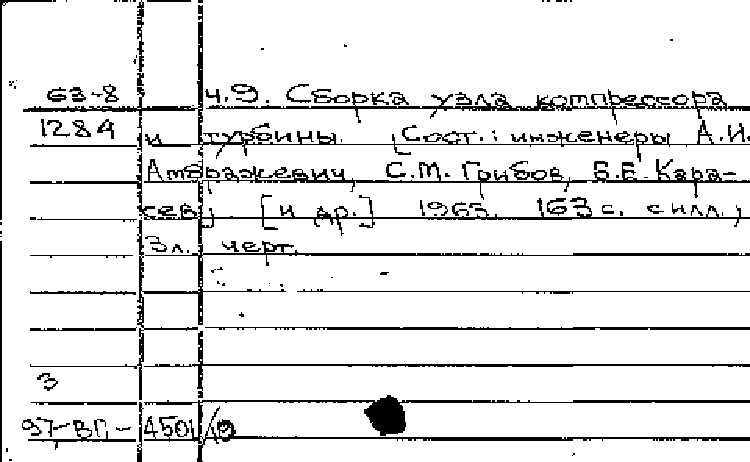 63-8 ч.9. Сборка узла компрессора
1284 и турбины. [Сост.: инженеры А.И.
Амбражевич, С.М. Грибов, Б.Е. Кара-
сев] [и др.] 1965. 163 с. с илл.;
3л. черт.
3
97-ВП-4501/9